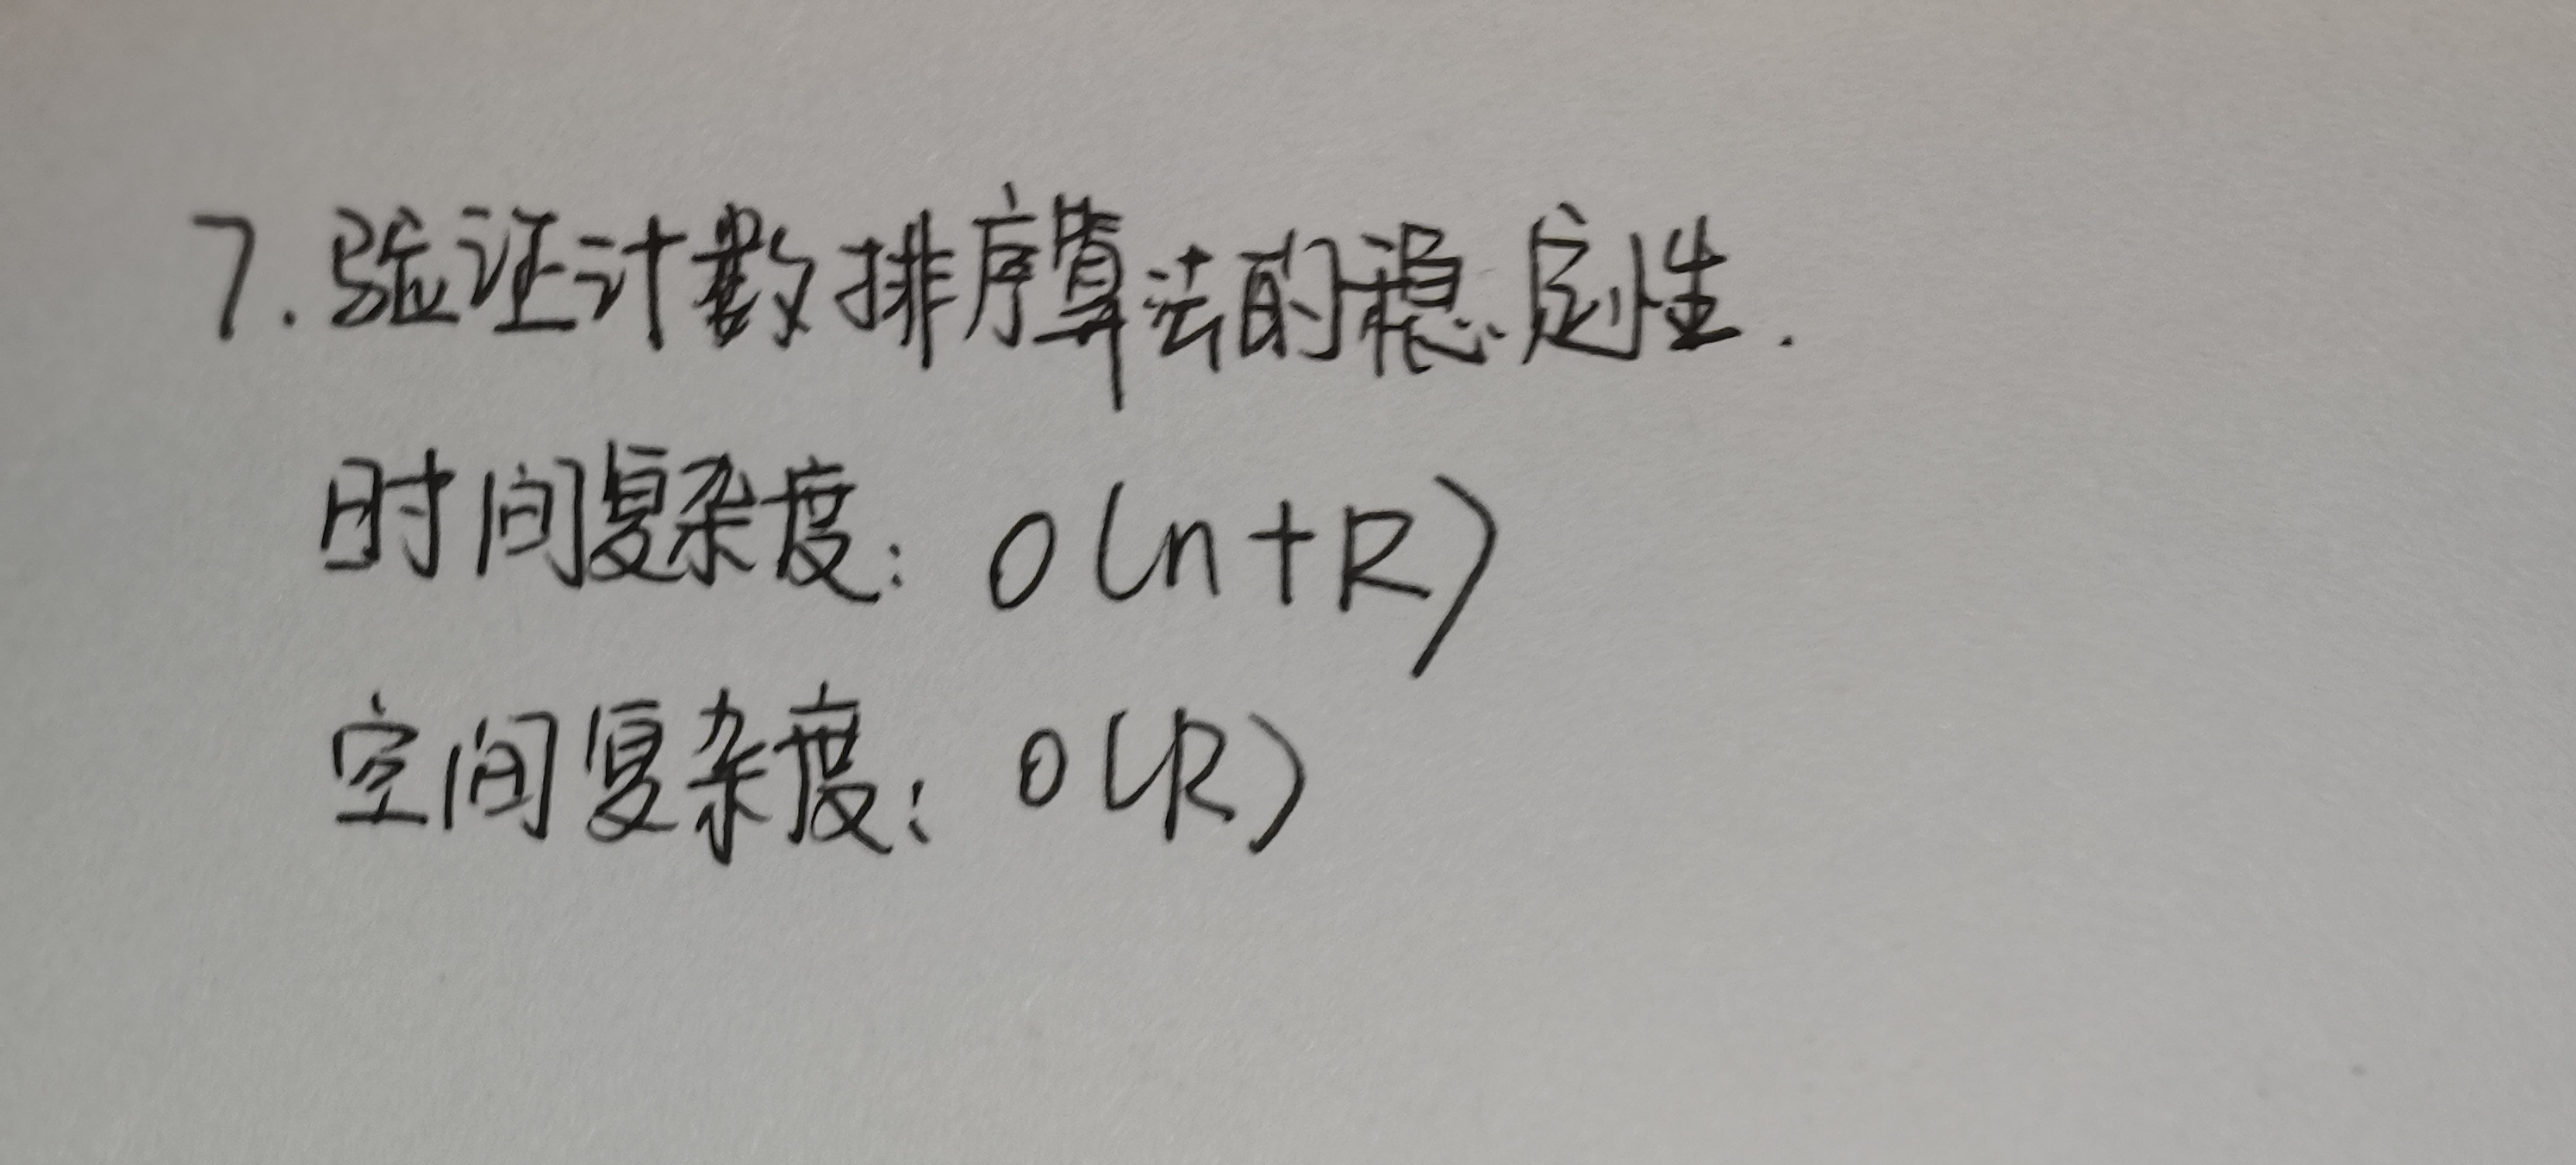 7.验证计数排序算法的稳定性.
时间复杂度: O(n+R)
空间复杂度: O(R)